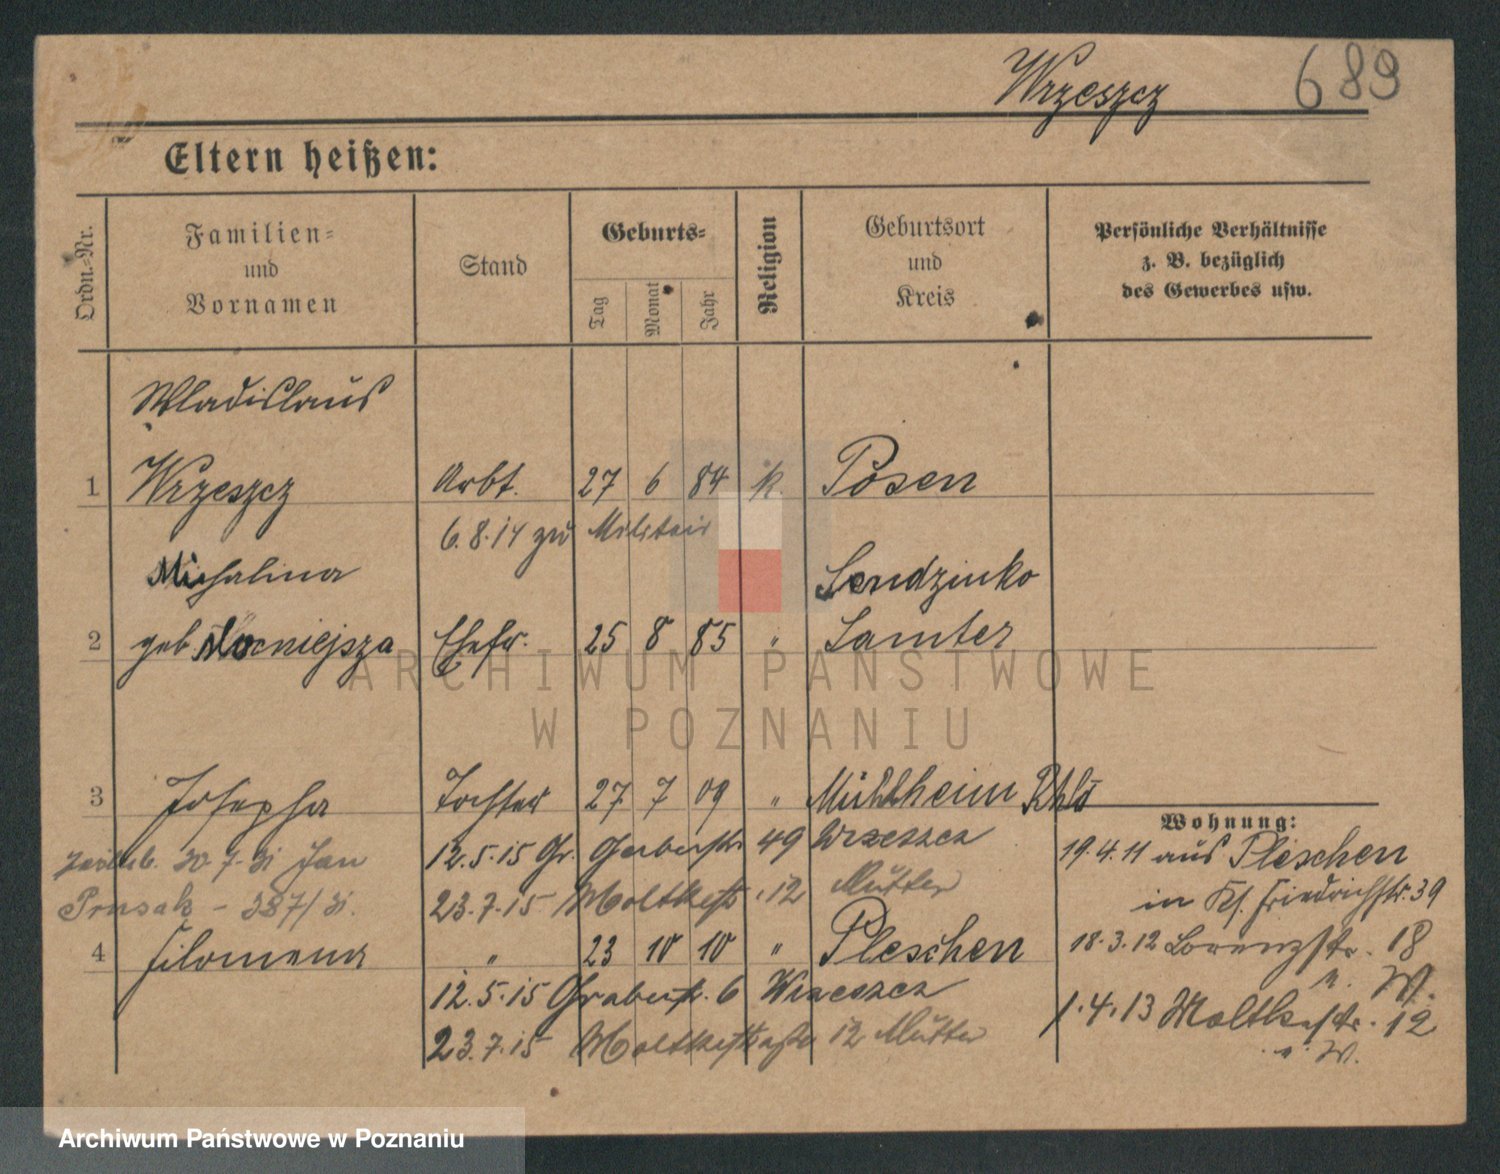 Wrzeszcz 689
Eltern heißen:
Ordn.-Nr.
Familien-
und
Vornamen
Stand
Geburts-
Tag
Monat
Jahr
Religion
Geburtsort
und
Kreis
Persönliche Verhältnisse
z. B. bezüglich
des Gewerbes usw.
Wladislaus
1 Wrzeszcz Arbt. 27 6 84 k Posen
6.8.14 zu Militair
Michalina Sendzinko
2 geb. Mocniejsza Ehefr. 25 8 85 " Samter
3 Josepha Tochter 27 7 09 " Mühlheim Rhld
Wohnung:
12.5.15 Gr. Gerberstr. 49 Wrzeszcz
19.4.11 aus Pleschen
30.7.31 Jan
23.7.15 Moltkestr. 12 Mutter
in Kl. Friedrichstr. 39
Prusak - 387/31.
4 Filomena " 23 10 10 " Pleschen
18.3.12 Lorenzstr. 18
12.5.15 Graberstr. 6 Wrzeszcz
1.4.13 Moltkestr. 12
23.7.15 Moltkestraße 12 Mutter
ARCHIWUM PAŃSTWOWE
W POZNANIU
Archiwum Państwowe w Poznaniu